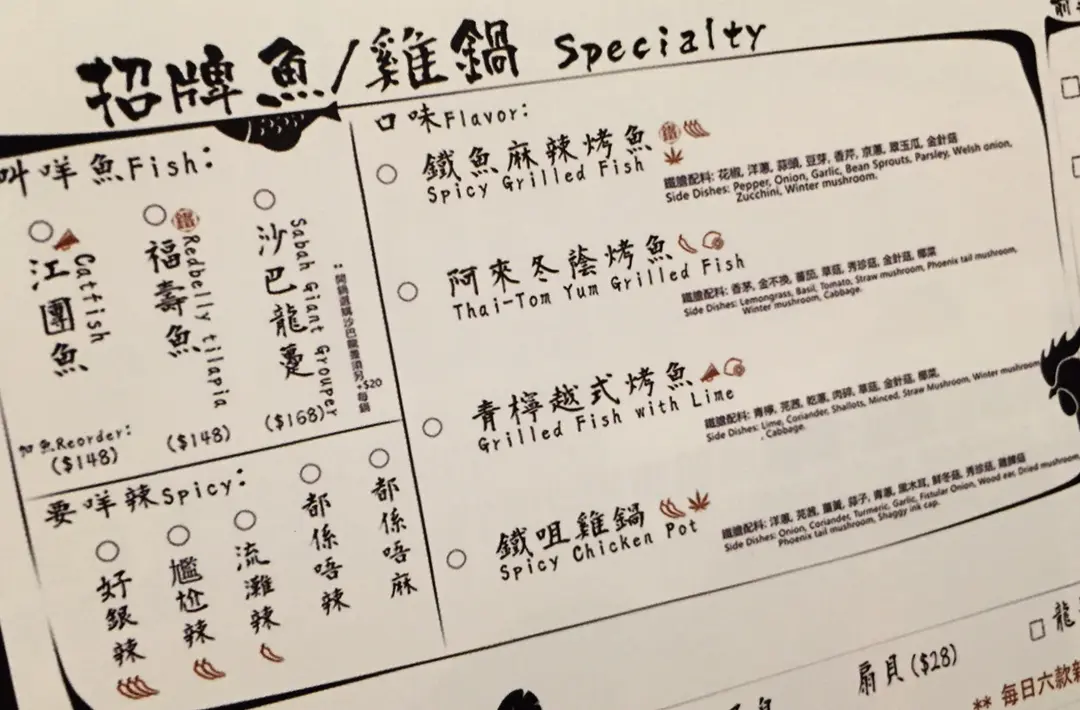 招牌魚/雞鍋 Specialty
叫咩魚Fish:
江團魚 Catfish
鐵
福壽魚 Redbelly tilapia
沙巴龍躉 Sabah Giant Grouper
: 開鍋選購沙巴龍躉須另+$20每鍋
加魚Reorder:
($148)
($148)
($168)
要咩辣Spicy:
好銀辣
尷尬辣
流灘辣
都係唔辣
都係唔麻
口味Flavor:
鐵魚麻辣烤魚 鐵
Spicy Grilled Fish
鐵膽配料: 花椒, 洋蔥, 蒜頭, 豆芽, 香芹, 京蔥, 翠玉瓜, 金針菇
Side Dishes: Pepper, Onion, Garlic, Bean Sprouts, Parsley, Welsh onion,
Zucchini, Winter mushroom.
阿來冬蔭烤魚
Thai-Tom Yum Grilled Fish
鐵膽配料: 香茅, 金不換, 蕃茄, 草菇, 秀珍菇, 金針菇, 椰菜
Side Dishes: Lemongrass, Basil, Tomato, Straw mushroom, Phoenix tail mushroom,
Winter mushroom, Cabbage.
青檸越式烤魚
Grilled Fish with Lime
鐵膽配料: 青檸, 芫茜, 乾蔥, 肉碎, 草菇, 金針菇, 椰菜
Side Dishes: Lime, Coriander, Shallots, Minced, Straw Mushroom, Winter mushroom
, Cabbage.
鐵咀雞鍋
Spicy Chicken Pot
鐵膽配料: 洋蔥, 芫茜, 薑黃, 蒜子, 青蔥, 黑木耳, 鮮冬菇, 秀珍菇, 雞髀菇
Side Dishes: Onion, Coriander, Turmeric, Garlic, Fistular Onion, Wood ear, Dried mushroom,
Phoenix tail mushroom, Shaggy ink cap.
扇貝($28)
龍
** 每日六款